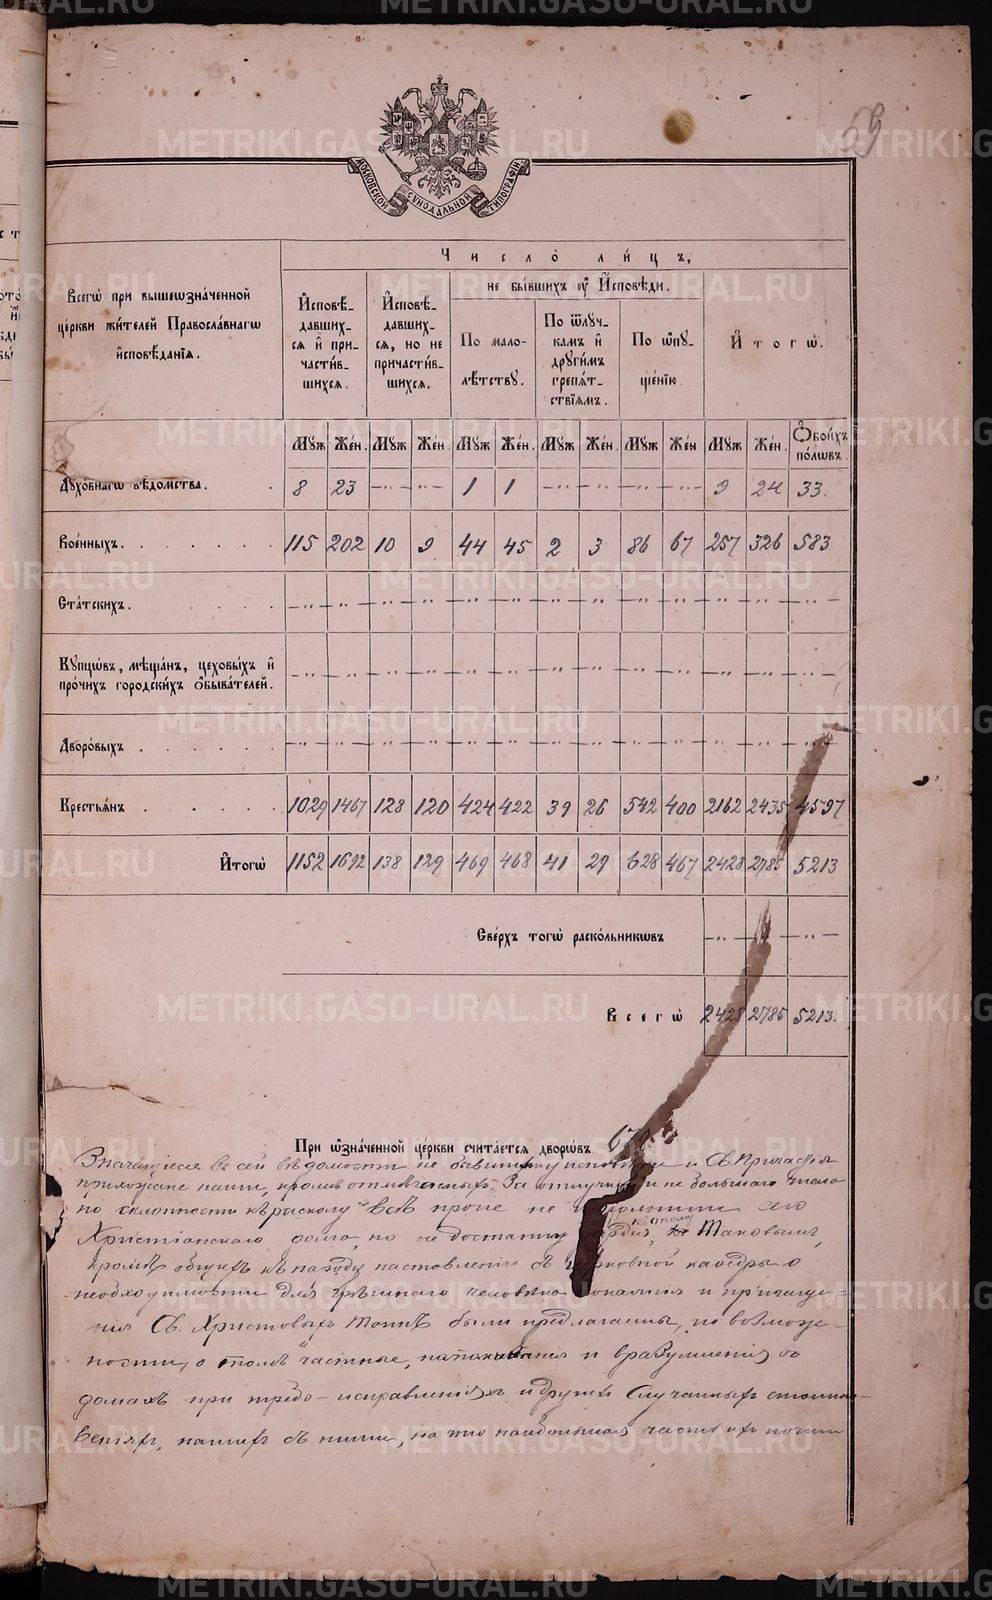 59
МОСКОВСКОЙ СѴНОДАЛЬНОЙ ТИПОГРАФІИ
Число̀ ли́цъ,
Всегѡ̀ при вышеѡзна́ченной
це́ркви жи́телей Правосла́внагѡ
и҆сповѣ́данїѧ.
И҆сповѣ́-
давших-
сѧ и҆ при-
части́в-
шихсѧ.
И҆сповѣ́-
давших-
сѧ, но не
причасти́в-
шихсѧ.
не бы́вшихъ ᲂу҆ И҆́сповѣди.
По мало-
лѣ́тству.
По ѿлꙋч-
камъ и҆
дрꙋги́мъ
препѧ́т-
ствїѧмъ.
По ѡ҆пꙋ-
ще́нїю.
И҆тогѡ̀.
Мꙋж Же́н. Мꙋж Же́н Мꙋж Же́н. Мꙋж Же́н. Мꙋж Же́н Мꙋж Же́н. Ѻ҆бои́хъ по́лѡвъ.
Дꙋхо́внагѡ вѣ́домства. 8 23 —"— —"— 1 1 —"— —"— —"— —"— 9 24 33.
Вое́нныхъ. 115 202 10 9 44 45 2 3 86 67 257 326 583
Ста́тскихъ. —"— —"— —"— —"— —"— —"— —"— —"— —"— —"— —"— —"— —"—
Кꙋпцѡ́въ, мѣща́нъ, цеховы́хъ и҆
про́чихъ городски́хъ ѻ҆быва́телей. —"— —"— —"— —"— —"— —"— —"— —"— —"— —"— —"— —"— —"—
Дворо́выхъ —"— —"— —"— —"— —"— —"— —"— —"— —"— —"— —"— —"— —"—
Крестьѧ́нъ 1029 1467 128 120 424 422 39 26 542 400 2162 2435 4597
И҆тогѡ̀ 1152 1692 138 129 469 468 41 29 628 467 2428 2785 5213
Све́рхъ тогѡ̀ раско́льникѡвъ —"— —"— —"—
Всегѡ̀ 2428 2785 5213.
При ѡ҆зна́ченной це́ркви счита́етсѧ дворѡ́въ
Значащіеся въ сей вѣдомости не бывшими у исповѣди и Св. Причастія
прихожане наши, кромѣ отмѣченныхъ "За отлучкою" и не большаго числа
по склонности къ расколу" Всѣ прочіе не исполнили сего
Христіанскаго долга, по не достатку Таковымъ,
кромѣ общихъ къ народу наставленій съ церковной каѳедры о
необходимости для грѣшнаго человѣка покаянія и причаще-
нія Св. Христовыхъ Таинъ были предлагаемы, по возмож-
ности, о томъ частные, напоминанія и вразумленія въ
домахъ при требо-исправленіяхъ и другихъ случайныхъ столкно-
веніяхъ, нашихъ съ ними, на что наибольшая часть ихъ почти